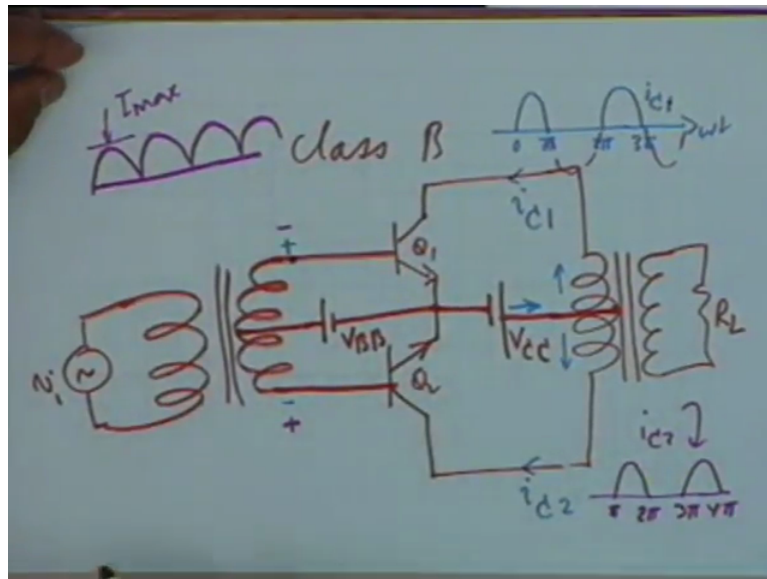 Imax
Class B
iC1
0 π 2π 3π ωt
iC1
Q1
vi
VBB
VCC
RL
Q2
iC2
iC2
π 2π 3π 4π